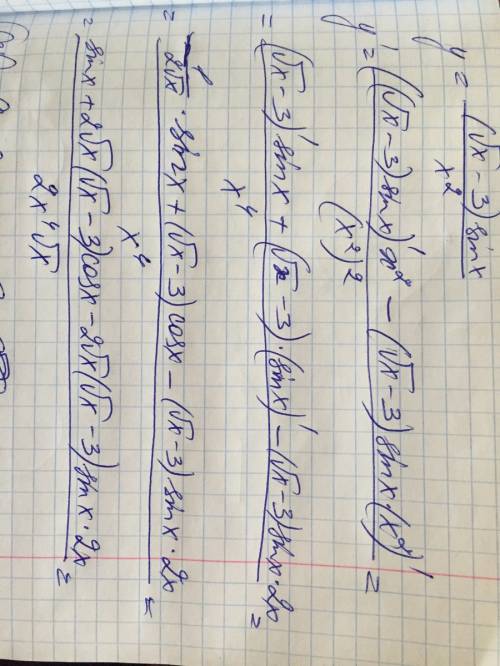 y = (√x - 3) sin x / x²
y' = ((√x - 3) sin x)' x² - (√x - 3) sin x (x²)' / (x²)² =
= (√x - 3)' sin x + (√x - 3) · (sin x)' - (√x - 3) sin x · 2x / x⁴ =
= 1/2√x · sin x + (√x - 3) cos x - (√x - 3) sin x · 2x / x⁴ =
= sin x + 2√x (√x - 3) cos x - 2√x (√x - 3) sin x · 2x / 2x⁴√x =